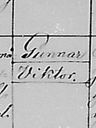 Gunnar
Viktor.